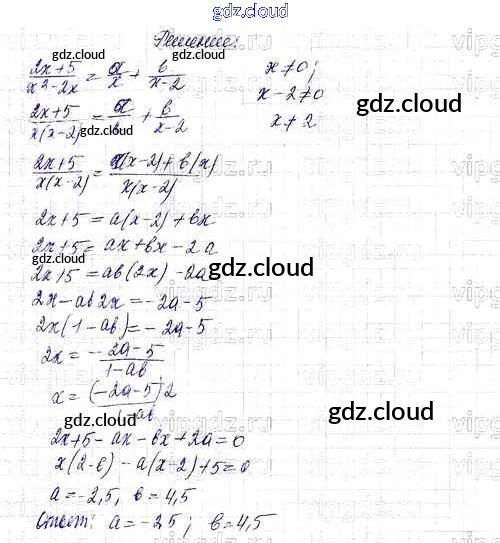 gdz.cloud
Решение:
gdz.cloud
(2x+5)/(x²-2x) = a/x + b/(x-2)
x≠0;
x-2≠0
x≠2
gdz.cloud
(2x+5)/(x(x-2)) = a/x + b/(x-2)
gdz.cloud
(2x+5)/(x(x-2)) = (a(x-2)+b(x))/(x(x-2))
gdz.cloud
2x+5=a(x-2)+bx
2x+5=ax+bx-2a
gdz.cloud
2x+5=ab(2x)-2a
gdz.cloud
2x-ab2x=-2a-5
2x(1-ab)=-2a-5
2x=(-2a-5)/(1-ab)
x=((-2a-5)2)/(1-ab)
gdz.cloud
gdz.cloud
2x+5-ax-bx+2a=0
x(2-b)-a(x-2)+5=0
a=-2,5, b=4,5
Ответ: a=-2,5; b=4,5
gdz.cloud